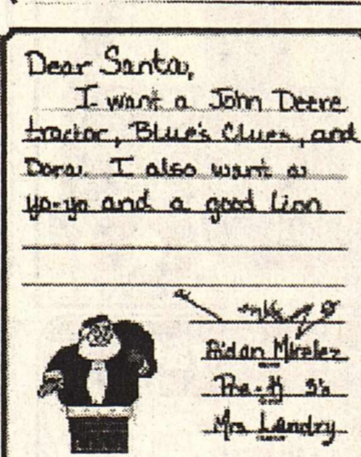 Dear Santa,
I want a John Deere
tractor, Blue's Clues, and
Dora. I also want a
yo-yo and a good lion
Aidan Mirelez
Pre-K 3's
Mrs. Landry